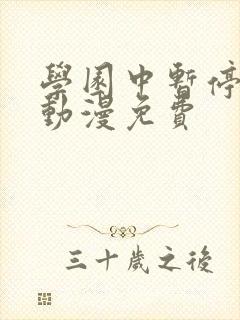 學園中暫停
動漫免費
三十歲之後